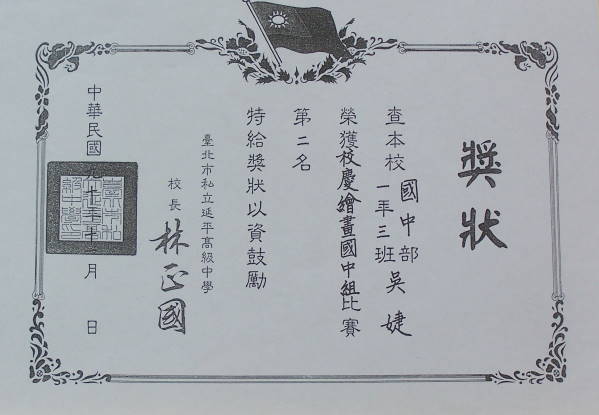 獎狀
查本校國中部
一年三班吳婕
榮獲校慶繪畫國中組比賽
第二名
特給獎狀以資鼓勵
臺北市私立延平高級中學
校長 林正國
中華民國 月 日